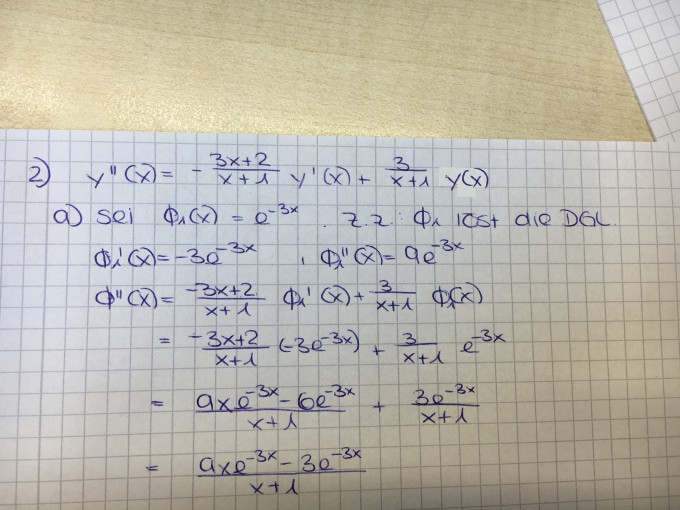 2) y''(x) = - (3x+2)/(x+1) y'(x) + 3/(x+1) y(x)
a) sei ϕ₁(x) = e^(-3x) . z.z.: ϕ₁ löst die DGL.
ϕ₁'(x) = -3e^(-3x) , ϕ₁''(x) = 9e^(-3x)
ϕ''(x) = (-3x+2)/(x+1) ϕ₁'(x) + 3/(x+1) ϕ₁(x)
= (-3x+2)/(x+1) (-3e^(-3x)) + 3/(x+1) e^(-3x)
= (9xe^(-3x) - 6e^(-3x))/(x+1) + 3e^(-3x)/(x+1)
= (9xe^(-3x) - 3e^(-3x))/(x+1)